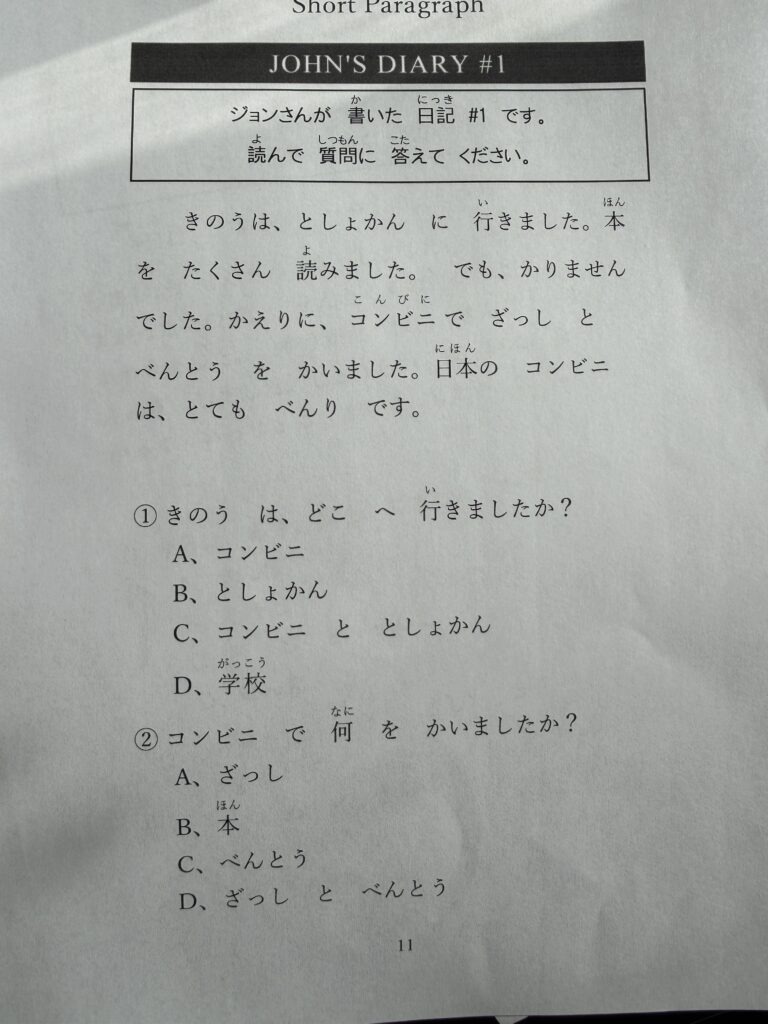 Short Paragraph
JOHN'S DIARY #1
ジョンさんが 書いた 日記 #1 です。
読んで 質問に 答えて ください。
きのうは、としょかん に 行きました。本
を たくさん 読みました。 でも、かりません
でした。かえりに、コンビニで ざっし と
べんとう を かいました。日本の コンビニ
は、とても べんり です。
① きのう は、どこ へ 行きましたか？
A、コンビニ
B、としょかん
C、コンビニ と としょかん
D、学校
② コンビニ で 何 を かいましたか？
A、ざっし
B、本
C、べんとう
D、ざっし と べんとう
11